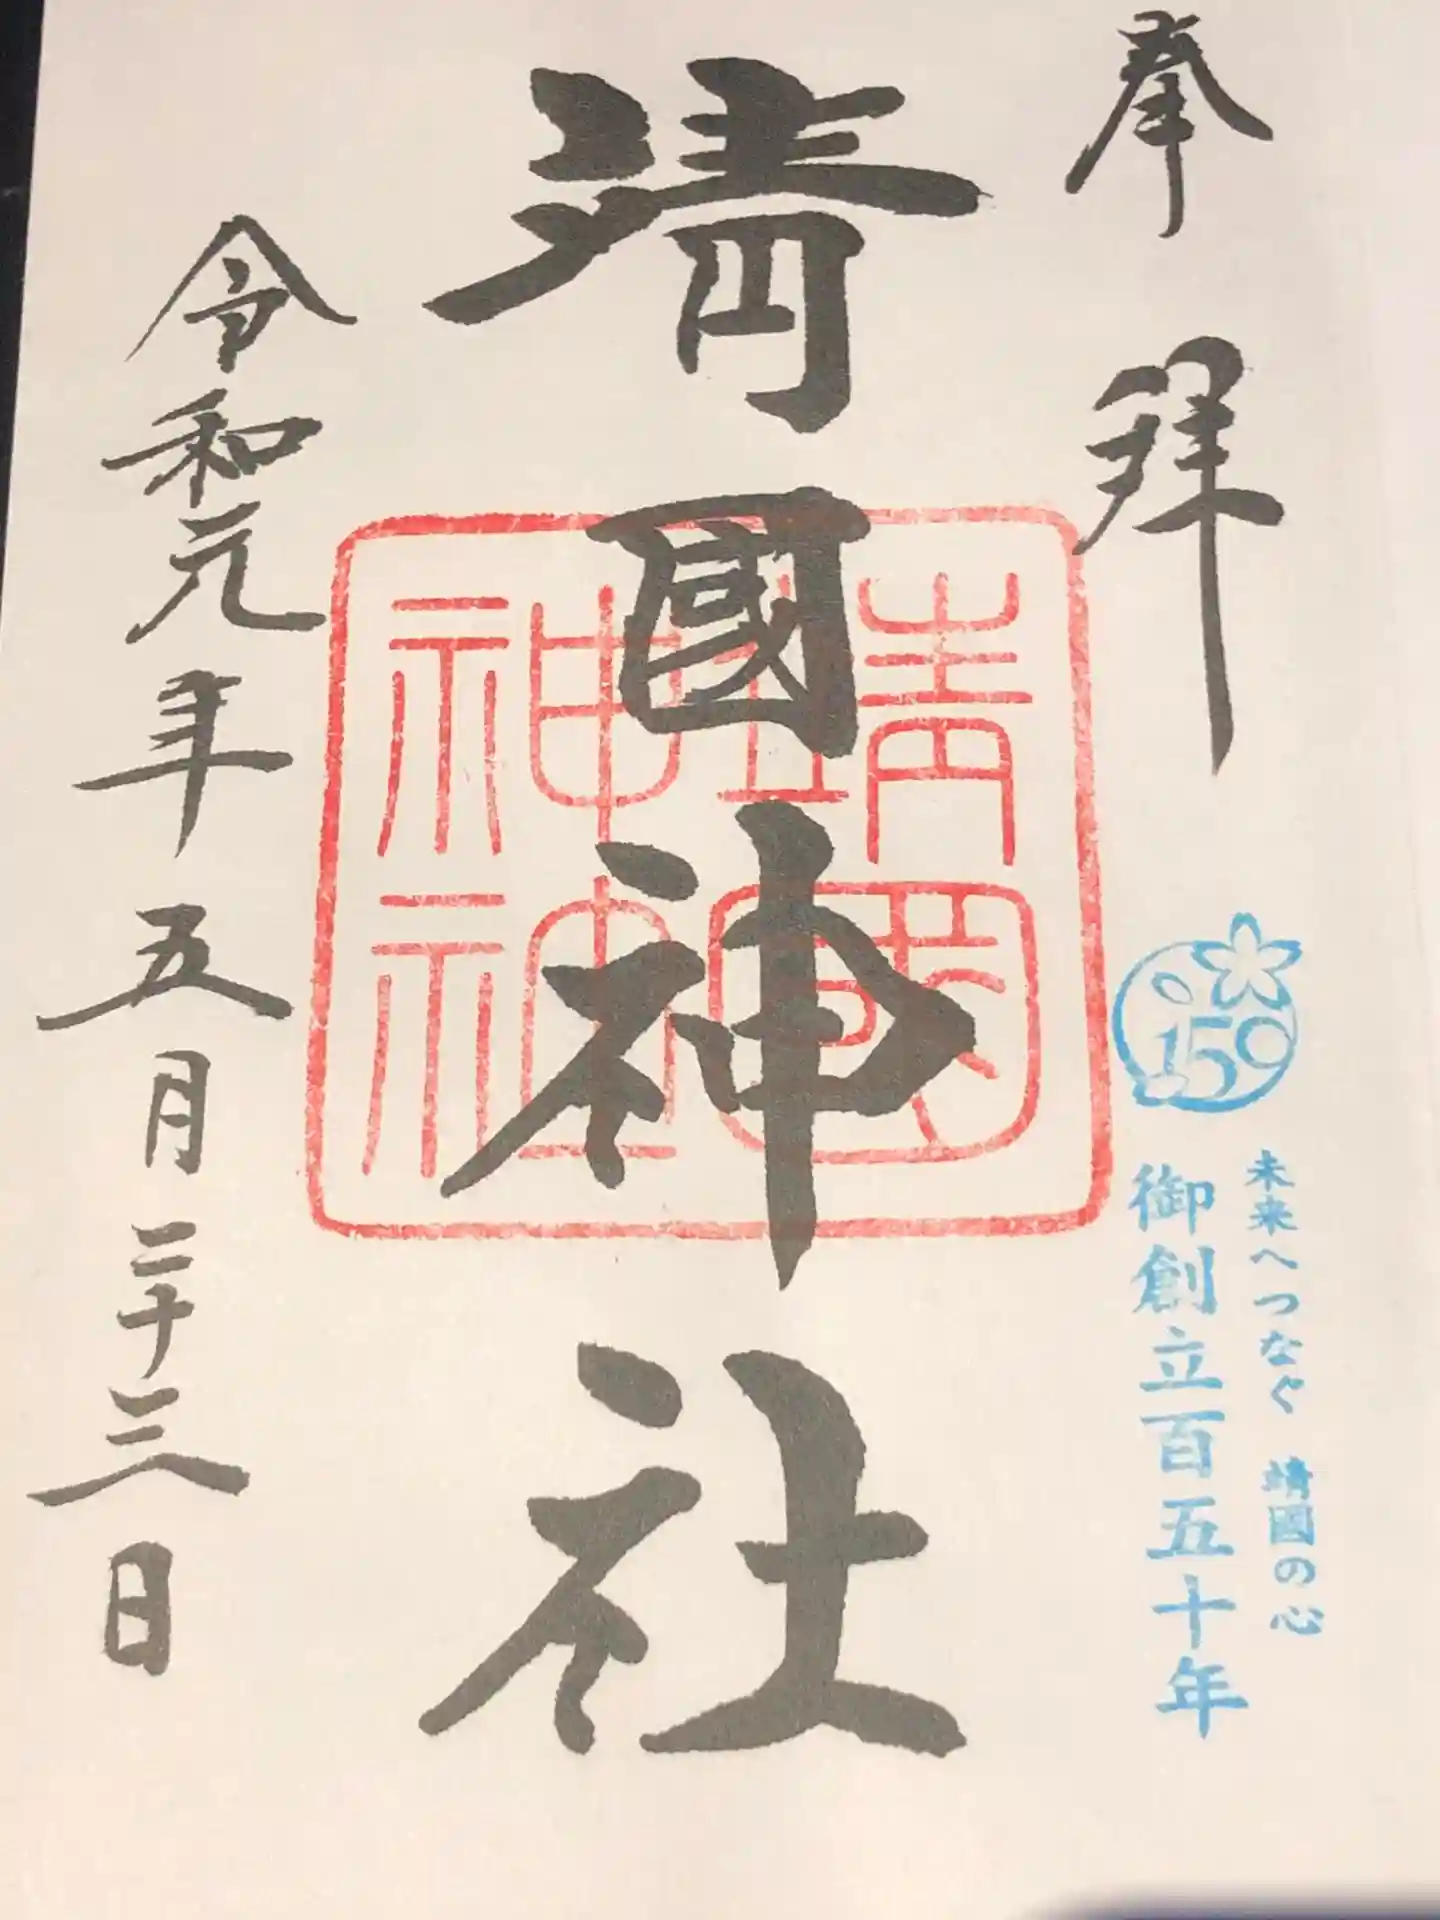 奉拝
150
未来へつなぐ 靖國の心
御創立百五十年
靖國神社
靖國神社
令和元年五月二十三日